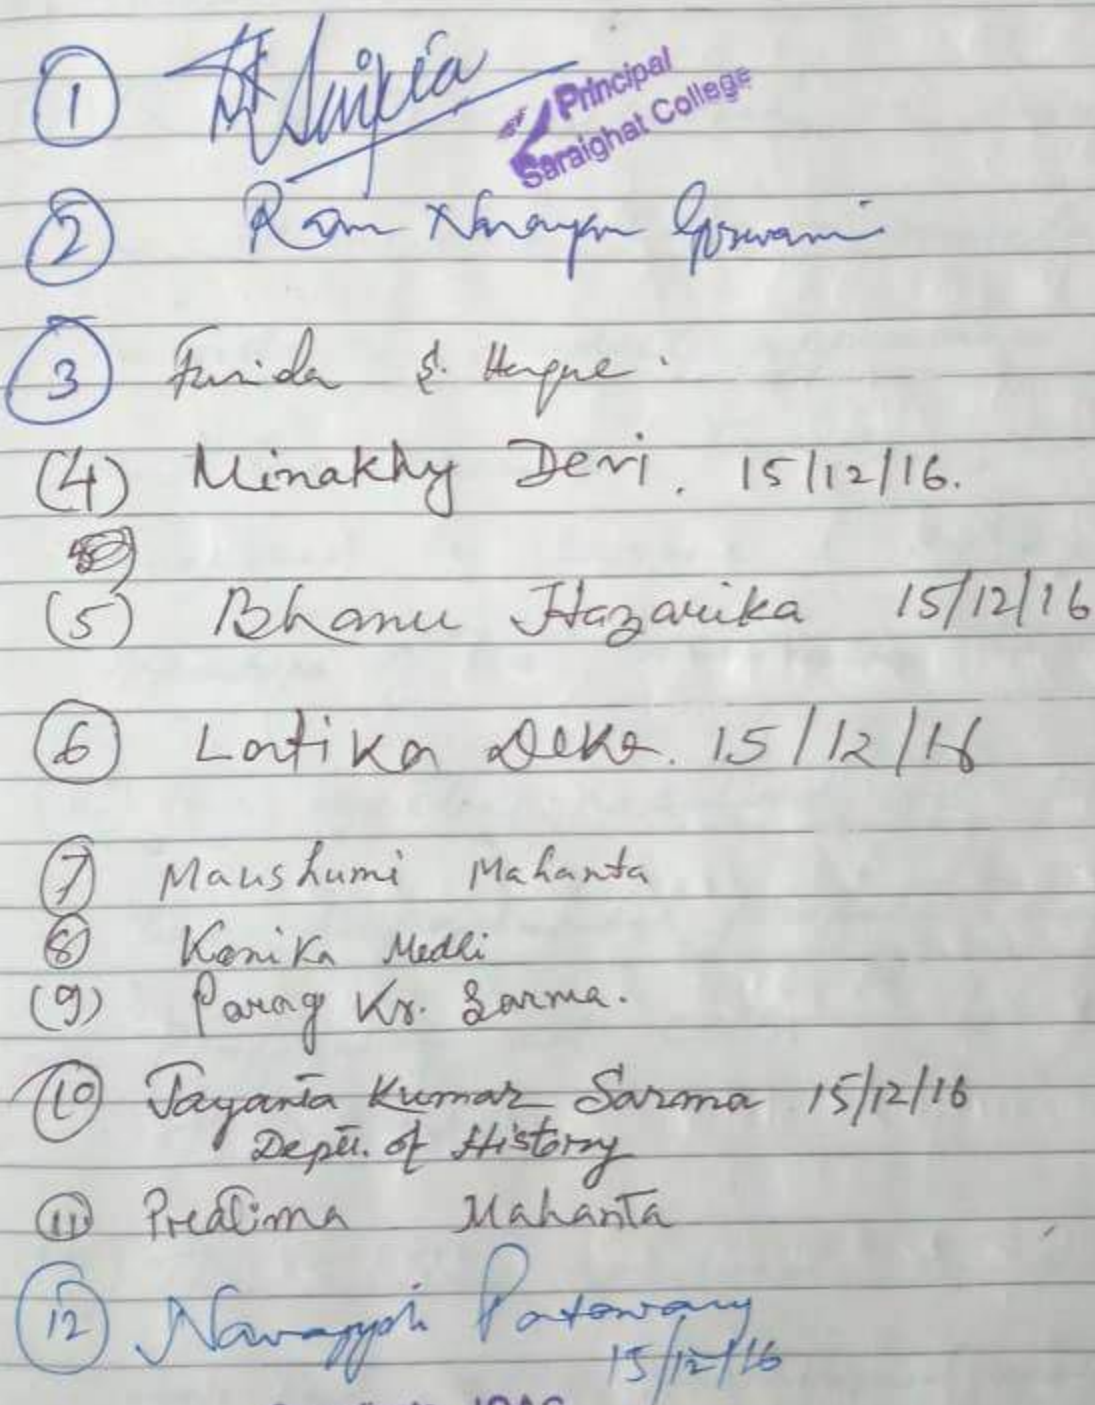 1 Saikia
Principal
Saraighat College
2 Ram Narayan Goswami
3 Farida S. Haque.
(4) Minakhy Devi. 15/12/16.
(5) Bhanu Hazarika 15/12/16
6 Latika Deka. 15/12/16
7 Maushumi Mahanta
8 Kanika Medhi
(9) Parag Kr. Sarma.
10 Jayanta Kumar Sarma 15/12/16
Deptt. of History
11 Pratima Mahanta
12 Navajyoti Patowary
15/12/16